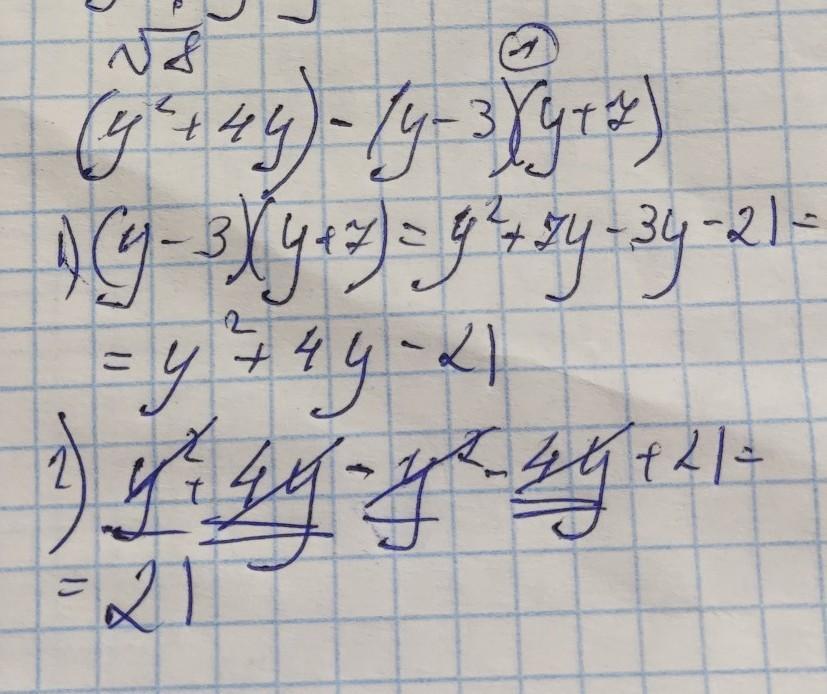 √8
①
(y² + 4y) - (y - 3)(y + 7)
1) (y - 3)(y + 7) = y² + 7y - 3y - 21 =
= y² + 4y - 21
2) y² + 4y - y² - 4y + 21 =
= 21